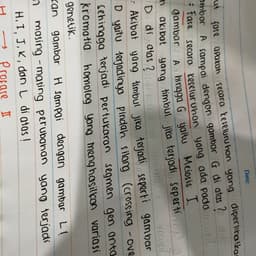 ut fase apakah secara berurutan yang diperlihatka
ambar A sampai dengan gambar G di atas ?
: Fase secara berurutan yang ada pada
gambar A hingga G yaitu Meiosis I
n akibat yang timbul jika terjadi seperti
D di atas ?
: Akibat yang timbul jika terjadi seperti gambar
D yaitu terjadinya pindah silang (crossing - ove
sehingga terjadi pertukaran segmen gen anta
kromatid homolog yang menghasilkan variasi
genetik.
can gambar H sampai dengan gambar L !
n masing - masing perubahan yang terjadi
H, I, J, K, dan L di atas !
H → Profase II